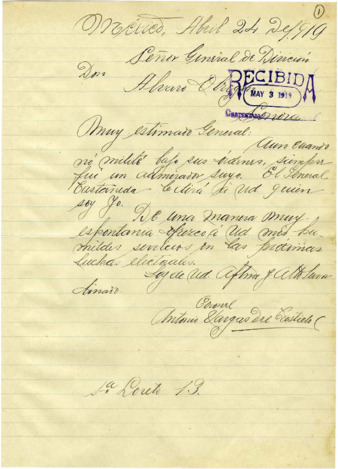 1
México, Abril 24 de 1919
Señor General de División
Don
Alvaro Obregón
RECIBIDA
MAY 3 1919
Sonora
Muy estimado General:
Aun cuando
no milité bajo sus órdenes, siempre
fuí un admirador suyo. El General
Castañeda le dirá a Ud quien
soy Yo.
De una manera muy
espontania ofrezco a Ud mis hu-
mildes servicios en las próximas
luchas electorales.
Soy de Ud Aftmo y Atto Servi-
Coronel
Antonio Vargas Del Castillo
1a Loreto 13.